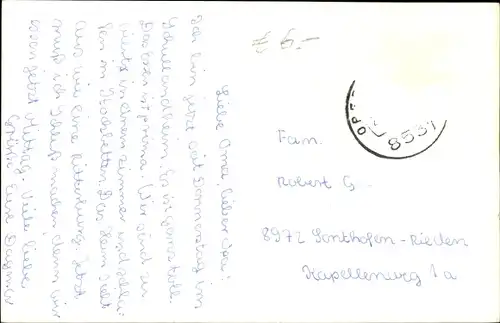 Liebe Oma, lieber Opa!
Ich bin jetzt seit Donnerstag im
Schullandheim. Es ist ganz toll.
Das Essen ist prima. Wir sind zu
viert in einem Zimmer und schla-
fen in Stockbetten. Das Heim sieht
aus wie eine Ritterburg. Jetzt
muß ich Schluß machen denn wir
essen jetzt Mittag. Viele liebe
Grüße Eure Dagmar
6,-
8531
Fam.
Robert G.
8972 Sonthofen-Rieden
Kapellenweg 1a